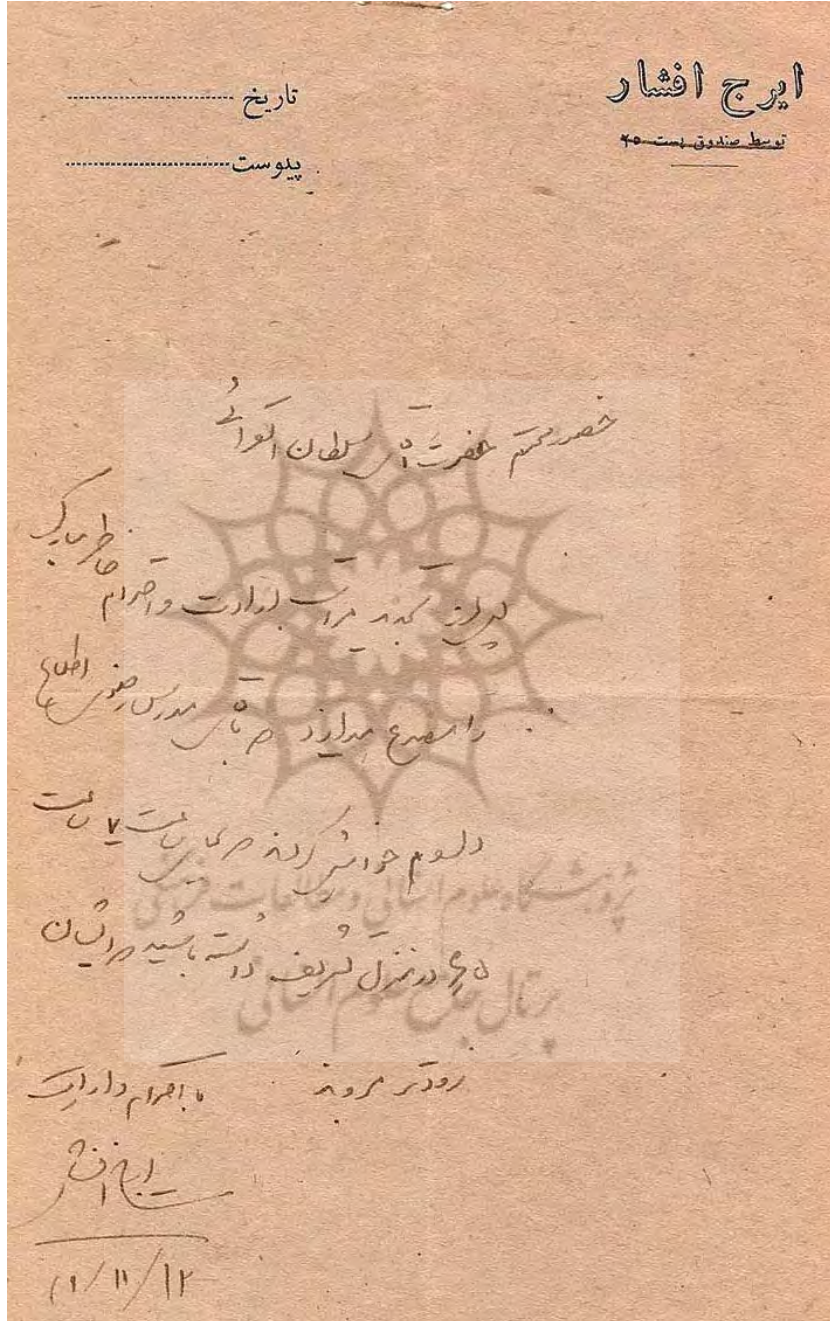 ایرج افشار
توسط صندوق پست ۴۵
تاریخ
پیوست
حضور محترم حضرت آقای سلطان القرائی
پس از تجدید مراتب ارادت و احترام خاطر مبارک
را مصدع میدارد که آقای مدرس رضوی اطلاع
دادند و خواهش کردند که بجای ساعت ۷ ساعت
در منزل تشریف داشته باشید که ایشان
زودتر میروند
با احترام و ارادت
ایرج افشار
۱۲/۱۱/
پژوهشگاه علوم انسانی و مطالعات فرهنگی
پرتال جامع علوم انسانی